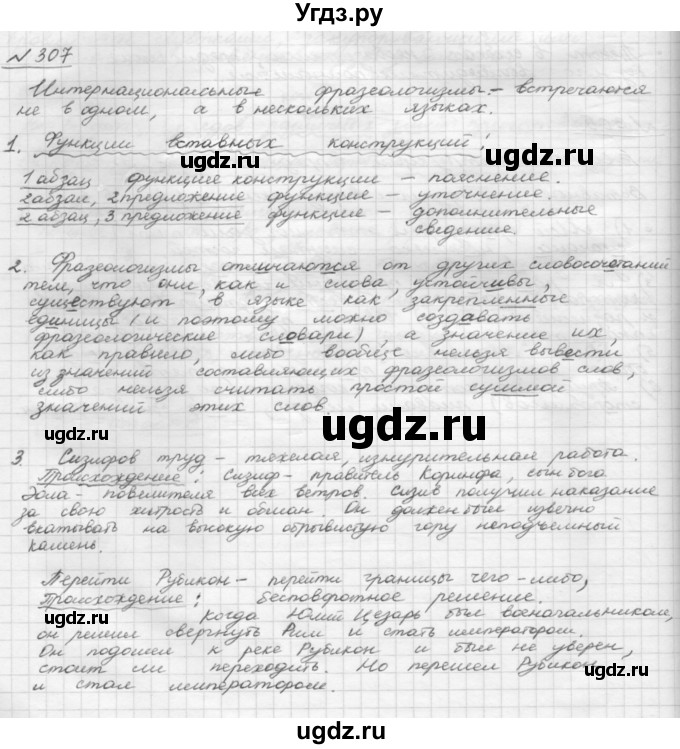 Угдз.ру
№ 307
Интернациональные фразеологизмы – встречаются
не в одном, а в нескольких языках.
1. Функции вставных конструкций:
1 абзац функцие конструкции – пояснение.
2 абзац, 2 предложение функцие – уточнение.
2 абзац, 3 предложение функцие – дополнительные
сведение.
2. Фразеологизмы отличаются от других словосочетаний
тем, что они, как и слова, устойчивы,
существуют в языке как закрепленные
единицы (и поэтому можно создавать
фразеологические словари), а значение их,
как правило, либо вообще нельзя вывести
из значений составляющих фразеологизмов слов,
либо нельзя считать простой суммой
значений этих слов.
3. Сизифов труд – тяжелая, изнурительная работа.
Происхождение: Сизиф – правитель Коринфа, сын бога
Эола – повелителя всех ветров. Сизив получил наказание
за свою хитрость и обман. Он должен был извечно
вкатывать на высокую обрывистую гору неподъемный
камень.
Перейти Рубикон – перейти границы чего-либо,
Происхождение: бесповоротное решение.
Когда Юлий Цезарь был военачальником,
он решил свергнуть Рим и стать императором.
Он подошел к реке Рубикон и был не уверен,
стоит ли переходить. Но перешел Рубикон
и стал императором.
ugdz.ru
ugdz.ru
ugdz.ru
ugdz.ru
ugdz.ru
ugdz.ru
ugdz.ru
ugdz.ru
ugdz.ru
ugdz.ru
ugdz.ru
ugdz.ru
ugdz.ru
ugdz.ru